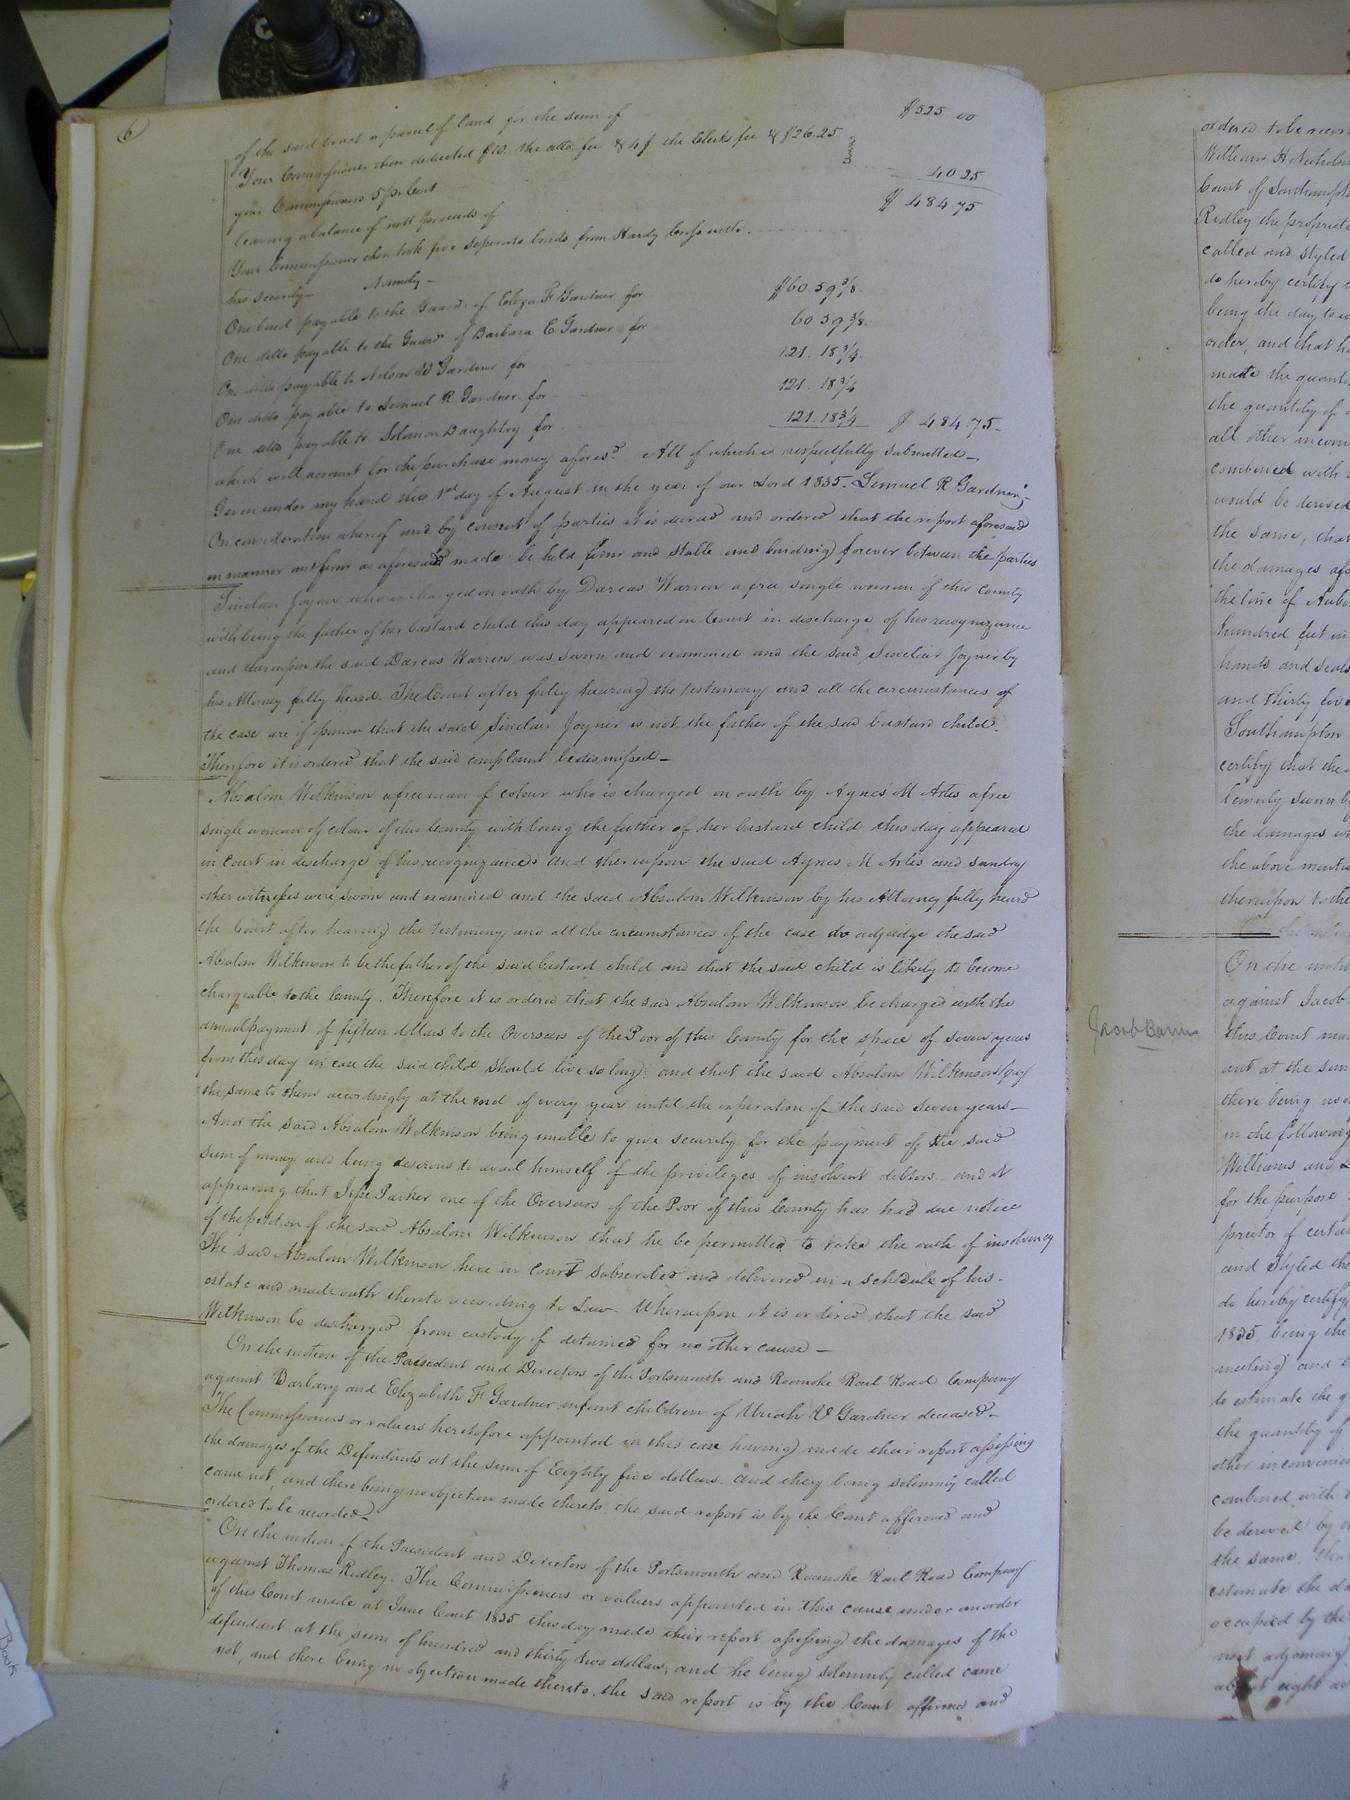 6
of the said tract or parcel of land for the sum of $525 00
Your Commissioner then deducted $10. the atto. fee & 4 $ the Clerks fee & $26.25
your Commissioners 5 pr Cent 40 25
leaving a balance of nett proceeds of $ 484.75
Your Commissioner then took five separate bonds from Hardy with
his security Namely
One bond payable to the Guard. of Eliza F Gardner for $60.59 3/8.
One ditto payable to the Guard of Barbara E Gardner for 60 59 3/8.
One ditto payable to Nelson W Gardner for 121. 18 3/4.
One ditto payable to Lemuel R Gardner for 121. 18 3/4
One ditto payable to Solomon Daughtry for 121. 18 3/4 $ 484.75
which will account for the purchase money afores.d All of which is respectfully submitted
Given under my hand this 1st day of August in the year of our Lord 1835. Lemuel R Gardner
On consideration whereof and by consent of parties it is decreed and ordered that the report aforesaid
in manner and form as aforesaid made be held firm and stable and binding forever between the parties
Sinclair Joyner who is charged on oath by Darcas Warren a free single woman of this County
with being the father of her bastard child this day appeared in Court in discharge of his recognizance
and thereupon the said Darcas Warren was sworn and examined and the said Sinclair Joyner by
his Attorney fully heard. The Court after fully hearing the testimony and all the circumstances of
the case are of opinion that the said Sinclair Joyner is not the father of the said bastard child.
Therefore it is ordered that the said complaint be dismissed
Absalom Wilkinson a free man of colour who is charged on oath by Agnes M Artes a free
single woman of colour of this County with being the father of her bastard child this day appeared
in Court in discharge of his recognizance and thereupon the said Agnes M Artes and sundry
other witnesses were sworn and examined and the said Absalom Wilkinson by his Attorney fully heard
the Court after hearing the testimony and all the circumstances of the case do adjudge the said
Absalom Wilkinson to be the father of the said bastard child and that the said child is likely to become
chargeable to the County. Therefore it is ordered that the said Absalom Wilkinson be charged with the
annual payment of fifteen dollars to the Overseers of the Poor of this County for the space of seven years
from this day in case the said child should live so long and that the said Absalom Wilkinson pay
the same to them accordingly at the end of every year until the expiration of the said seven years
And the said Absalom Wilkinson being unable to give security for the payment of the said
sum of money and being desirous to avail himself of the privileges of insolvent debtors and it
appearing that Jesse Parker one of the Overseers of the Poor of this County has had due notice
of the petition of the said Absalom Wilkinson that he be permitted to take the oath of insolvency
The said Absalom Wilkinson here in Court subscribed and delivered in a schedule of his
estate and made oath thereto according to Law. Whereupon it is ordered that the said
Wilkinson be discharged from custody if detained for no other cause
On the motion of the President and Directors of the Portsmouth and Roanoke Rail Road Company
against Barbary and Elizabeth F Gardner infant children of Uriah W Gardner deceased
The Commissioners or valuers heretofore appointed in this case having made their report assessing
the damages of the Defendants at the sum of Eighty five dollars and they being solemnly called
came not, and there being no objection made thereto the said report is by the Court affirmed and
ordered to be recorded
On the motion of the President and Directors of the Portsmouth and Roanoke Rail Road Company
against Thomas Ridley. The Commissioners or valuers appointed in this cause under an order
of this Court made at June Court 1835 this day made their report assessing the damages of the
defendant at the sum of hundred and thirty two dollars, and he being solemnly called came
not, and there being no objection made thereto, the said report is by the Court affirmed and
ordered to be recor
William H Nicholso
Court of Southampto
Ridley the propriet
called and styled
do hereby certify
being the day to w
order, and that h
made the quanti
the quantity of
all other incon
combined with
would be derived
the same, that
the damages afs
the line of Aubi
hundred feet in
hands and seals
and thirty five
Southampton
certify that the
severally sworn b
the damages wh
the above menti
thereupon to the
On the motio
against Jacob
Jacob Barnes
this Court ma
ant at the sum
there being no o
in the following
Williams and
for the purpose
prietor of certai
and styled the
do hereby certify
1835 being the
meeting and
to estimate the q
the quantity of
other inconvenien
combined with
be derived by
the same, tha
estimate the da
occupied by the
next adjoining
about eight ac
Book